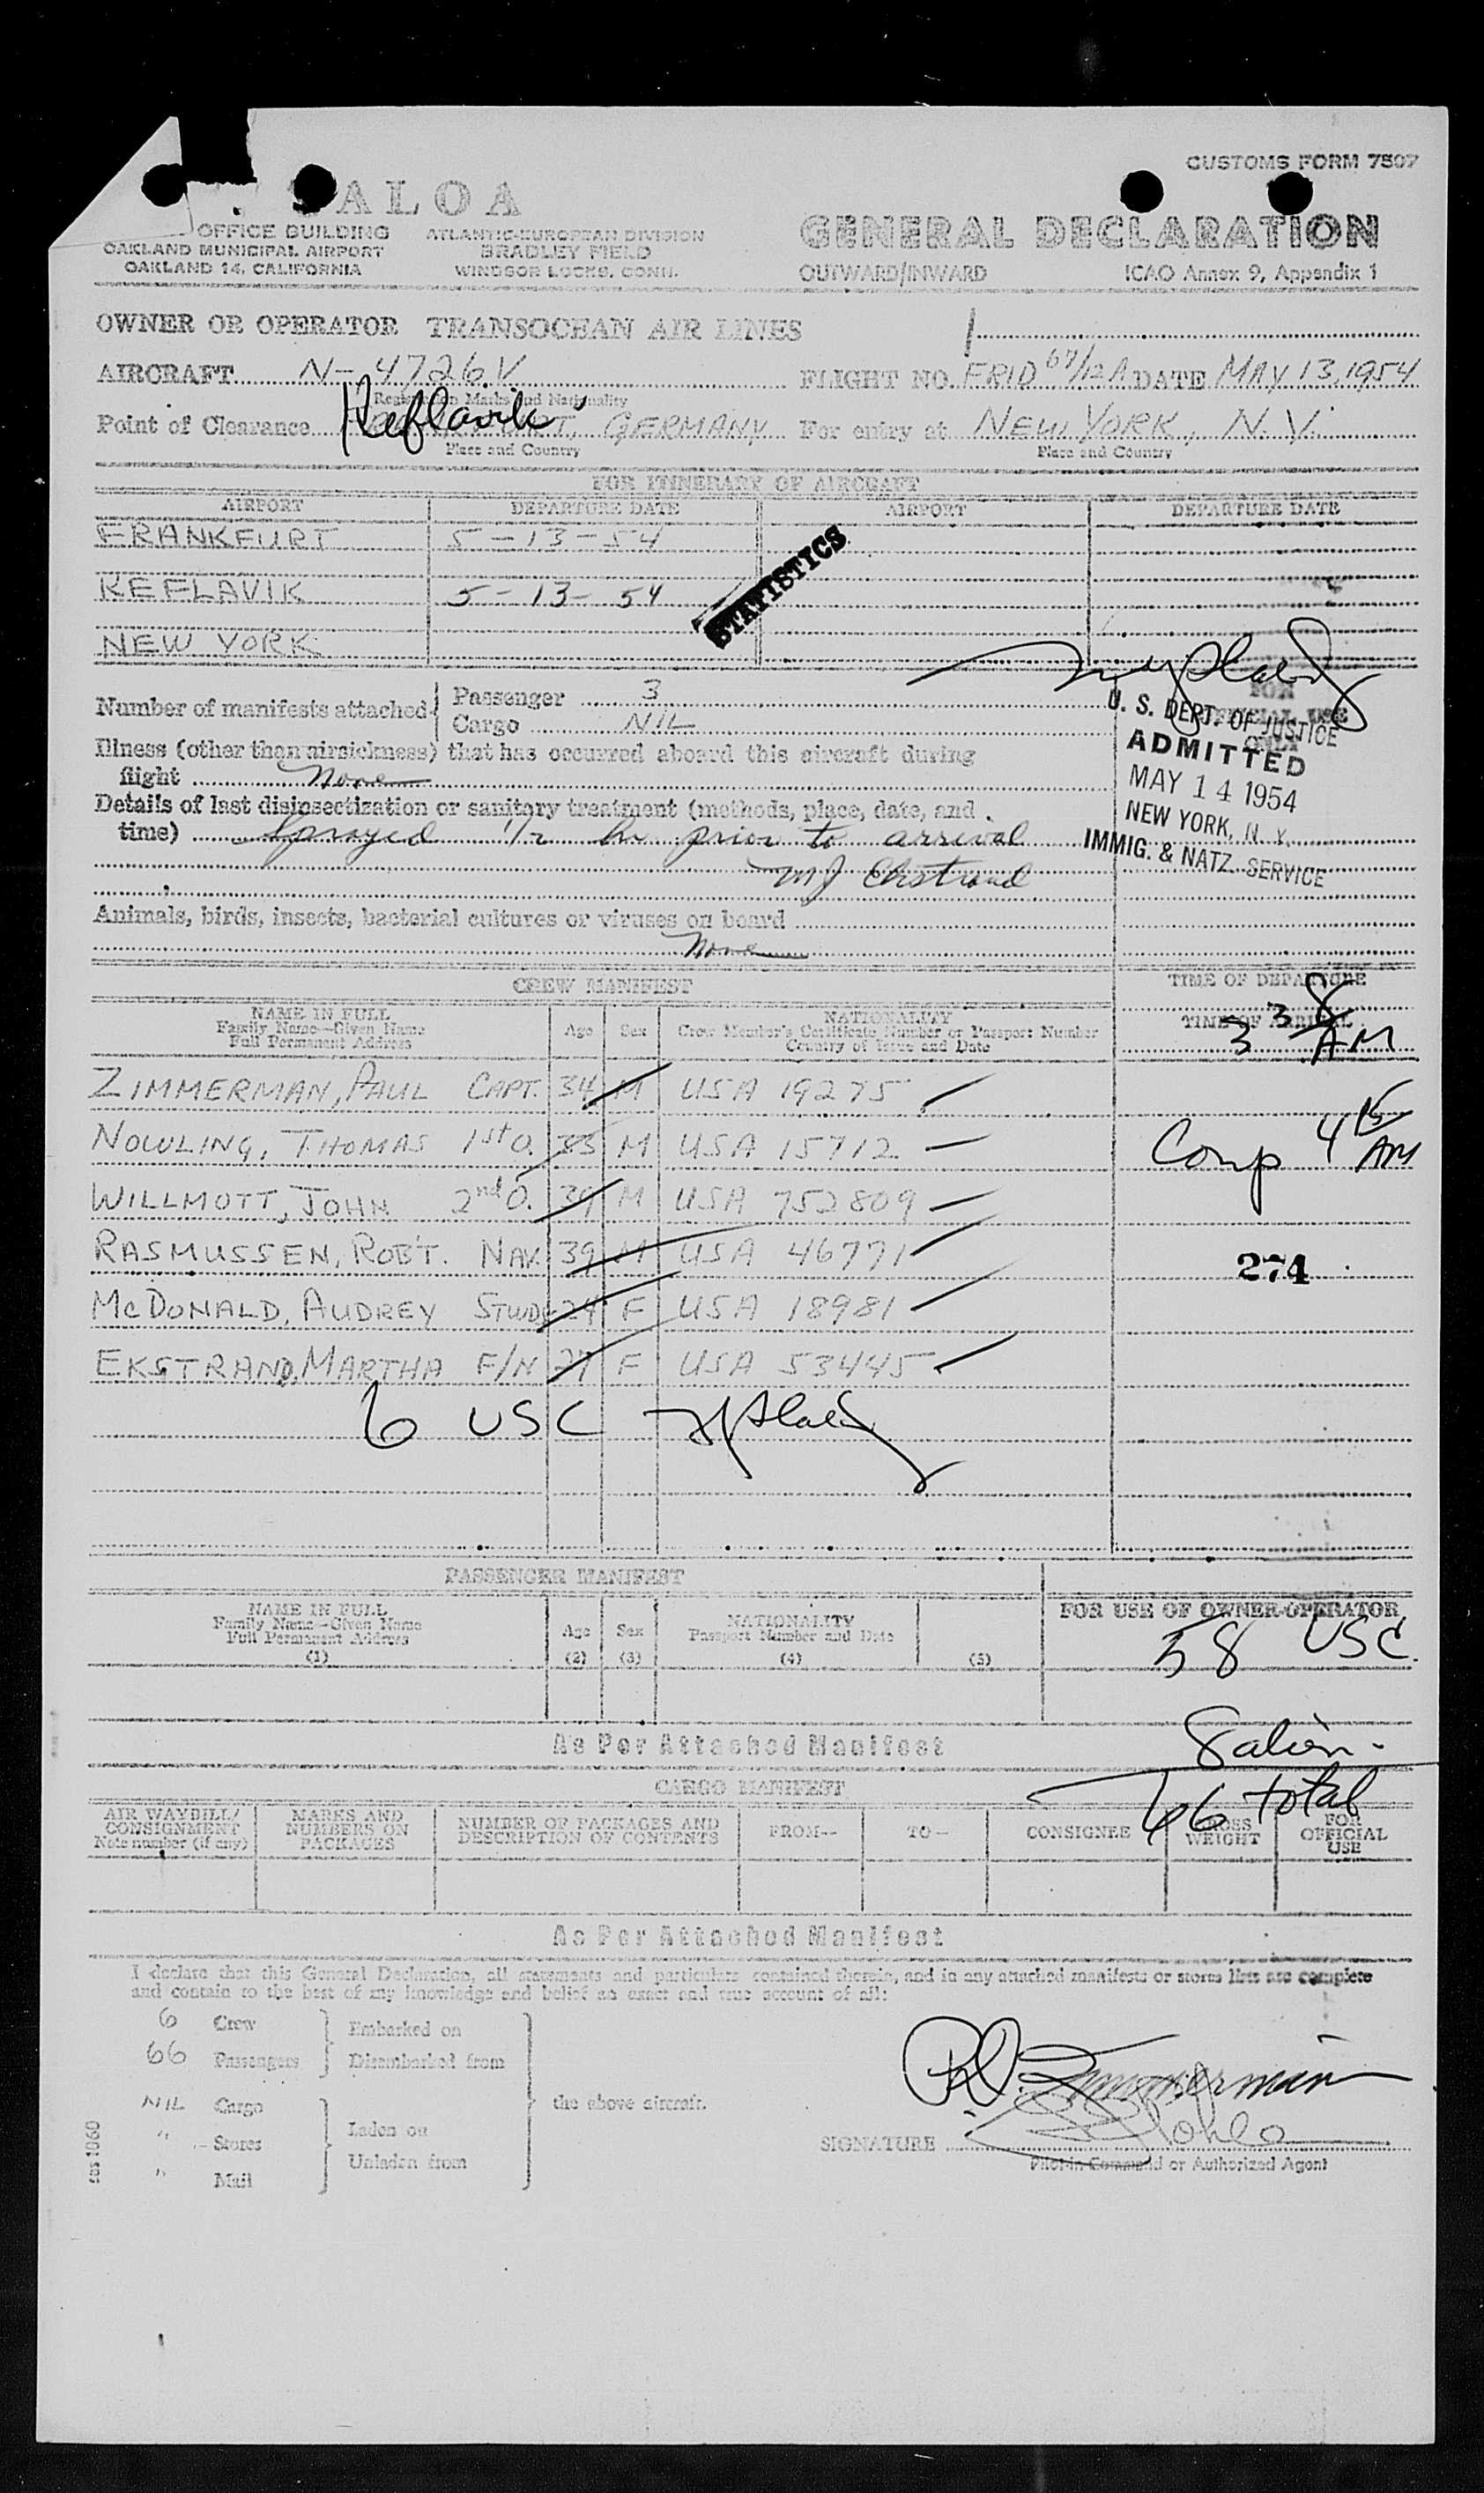 CUSTOMS FORM 7507
TALOA
OFFICE BUILDING
OAKLAND MUNICIPAL AIRPORT
OAKLAND 14, CALIFORNIA
ATLANTIC-EUROPEAN DIVISION
BRADLEY FIELD
WINDSOR LOCKS, CONN.
GENERAL DECLARATION
OUTWARD/INWARD ICAO Annex 9, Appendix 1
OWNER OR OPERATOR TRANSOCEAN AIR LINES
AIRCRAFT N-4726V FLIGHT NO. FRID 67/12A DATE MAY 13, 1954
Registration Marks and Nationality
Point of Clearance Keflavik GERMANY For entry at NEW YORK, N.Y.
Place and Country Place and Country
FOR ITINERARY OF AIRCRAFT
AIRPORT DEPARTURE DATE AIRPORT DEPARTURE DATE
FRANKFURT 5-13-54
KEFLAVIK 5-13-54
NEW YORK
STATISTICS
Number of manifests attached Passenger 3
Cargo NIL
FOR OFFICIAL USE ONLY
U. S. DEPT. OF JUSTICE
ADMITTED
MAY 14 1954
NEW YORK, N. Y.
IMMIG. & NATZ. SERVICE
Illness (other than airsickness) that has occurred aboard this aircraft during
flight None
Details of last disinsectization or sanitary treatment (methods, place, date, and
time) Sprayed 1/2 hr prior to arrival
MJ Ekstrand
Animals, birds, insects, bacterial cultures or viruses on board
None
CREW MANIFEST
TIME OF DEPARTURE
TIME OF ARRIVAL
3 38 AM
NAME IN FULL
Family Name—Given Name
Full Permanent Address
Age Sex
NATIONALITY
Crew Member's Certificate Number or Passport Number
Country of Issue and Date
ZIMMERMAN, PAUL CAPT. 34 M USA 19275
NOWLING, THOMAS 1st O. 33 M USA 15712
Comp 4 15 AM
WILLMOTT, JOHN 2nd O. 39 M USA 752809
RASMUSSEN, ROB'T. NAV. 39 M USA 46771
274
McDONALD, AUDREY STWDS 24 F USA 18981
EKSTRAND, MARTHA F/N 27 F USA 53445
6 USC
PASSENGER MANIFEST
NAME IN FULL
Family Name—Given Name
Full Permanent Address
(1)
Age
(2)
Sex
(3)
NATIONALITY
Passport Number and Date
(4)
(5)
FOR USE OF OWNER-OPERATOR
58 USC
As Per Attached Manifest
8 alien
66 total
CARGO MANIFEST
AIR WAYBILL/
CONSIGNMENT
Note number (if any)
MARKS AND
NUMBERS ON
PACKAGES
NUMBER OF PACKAGES AND
DESCRIPTION OF CONTENTS
FROM—
TO—
CONSIGNEE
GROSS
WEIGHT
FOR
OFFICIAL
USE
As Per Attached Manifest
I declare that this General Declaration, all statements and particulars contained therein, and in any attached manifests or stores lists are complete
and contain to the best of my knowledge and belief an exact and true account of all:
6 Crew Embarked on
66 Passengers Disembarked from
NIL Cargo the above aircraft.
" Stores Laden on
" Mail Unladen from
P.D. Zimmerman
SIGNATURE
Pilot-in Command or Authorized Agent